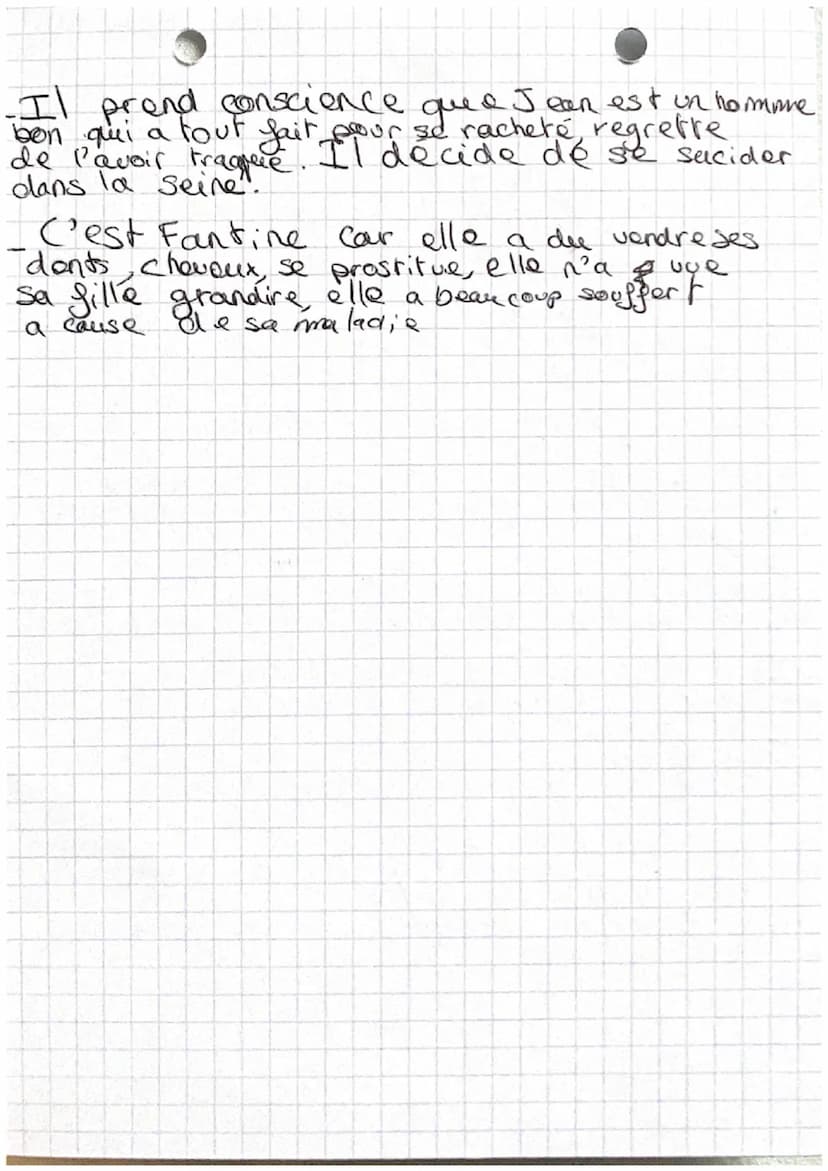 - Il prend conscience que Jean est un homme
bon qui a tout fait pour se racheté, regrette
de l'avoir traquée. Il décide de se sucider
dans la Seine.
- C'est Fantine car elle a du vendre ses
dents, cheveux, se prostitue, elle n'a vue
sa fille grandire, elle a beaucoup souffert
a cause de sa maladie